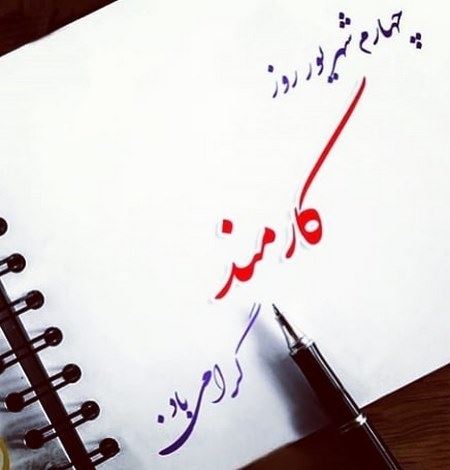 چهارم شهریور روز
کارمند
گرامی باد